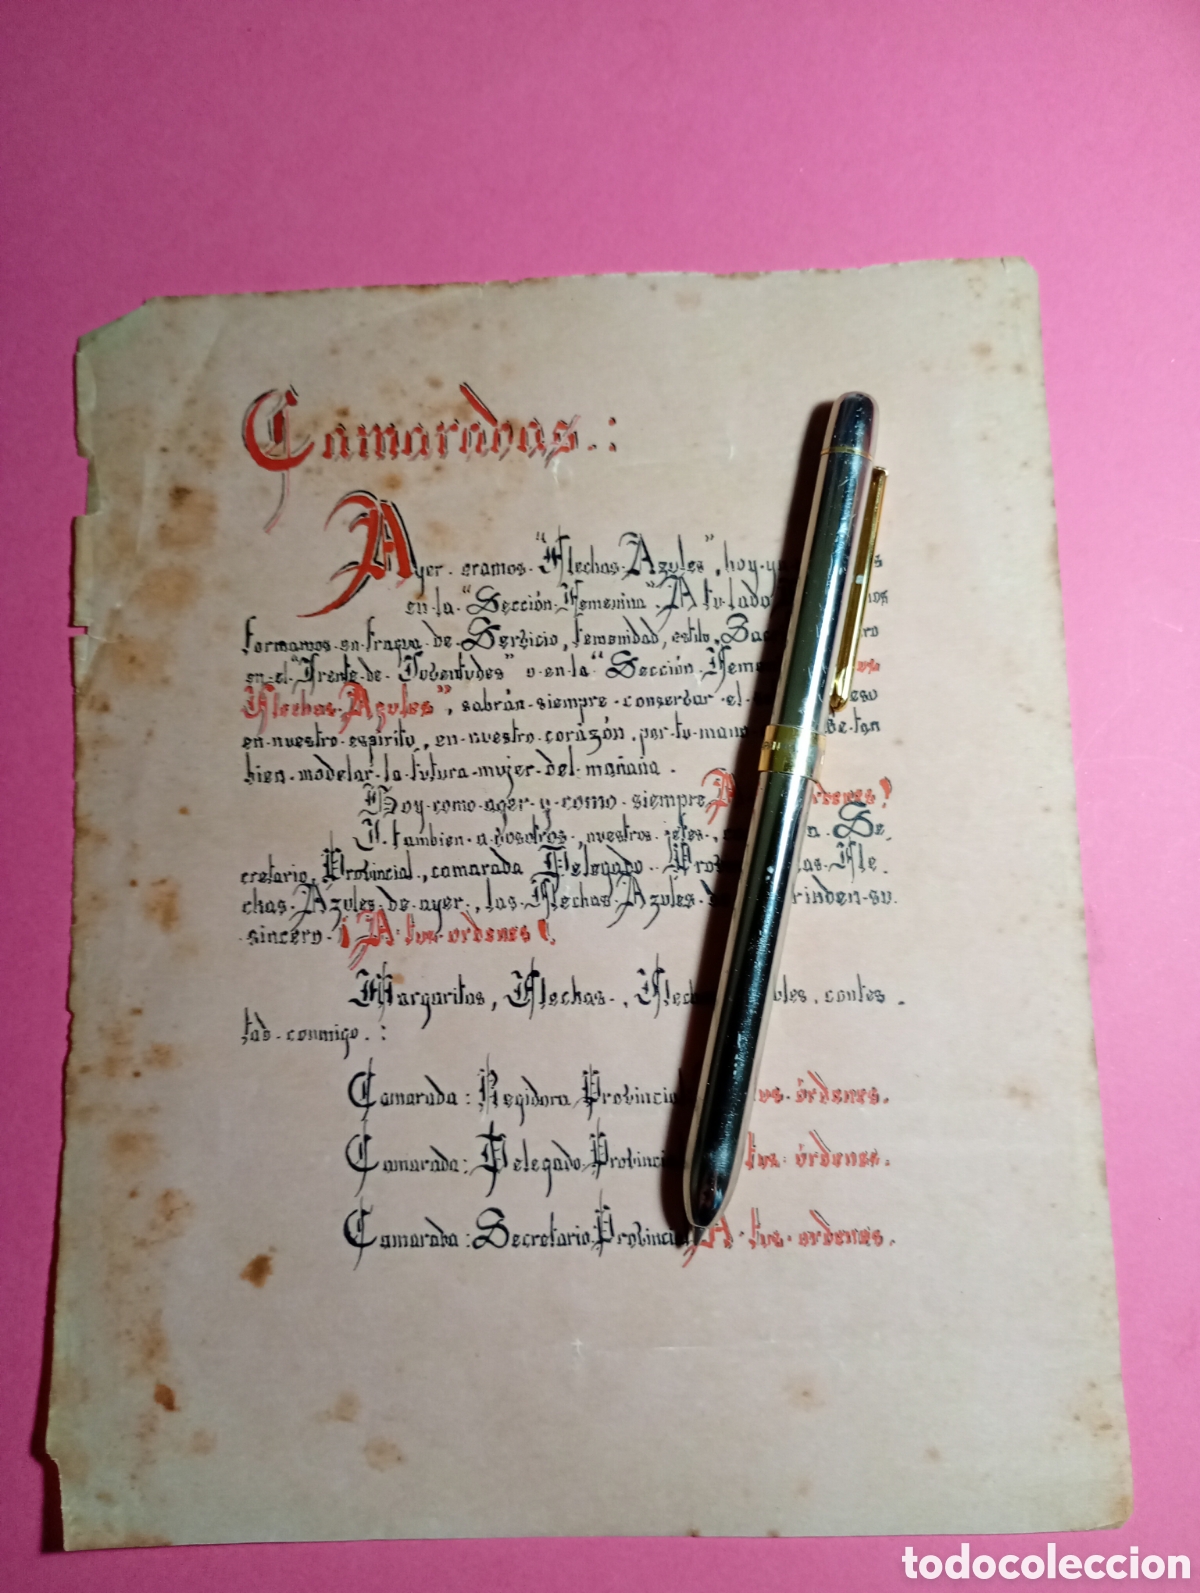 Camaradas.:
Ayer. eramos. "Flechas. Azules", hoy.
en. la. "Sección. Femenina". A tu lado
formamos. en. fragua. de. Servicio, femenidad, estilo,
en. el. "Frente. de. Juventudes" o. en. la. "Sección.
Flechas. Azules", sabrán. siempre. conservar. el.
en. nuestro. espiritu, en. nuestro. corazón. por. tu. tan
bien. modelar. la. futura. mujer. del. mañana.
Hoy. como. ayer. y. como. siempre
Y. tambien. a. vosotros., nuestros. jefes., Se.
cretario. Provincial., camarada Delegado. las. Fle.
chas. Azules. de. ayer., las. Flechas. Azules. rinden. su.
sincero. ¡A. tus. ordenes!.
Margaritas, Flechas., contes.
tad. conmigo.:
Camarada: Regidora. órdenes.
Camarada: Delegado. tus. órdenes.
Camarada: Secretario. A. tus. ordenes.
todocoleccion